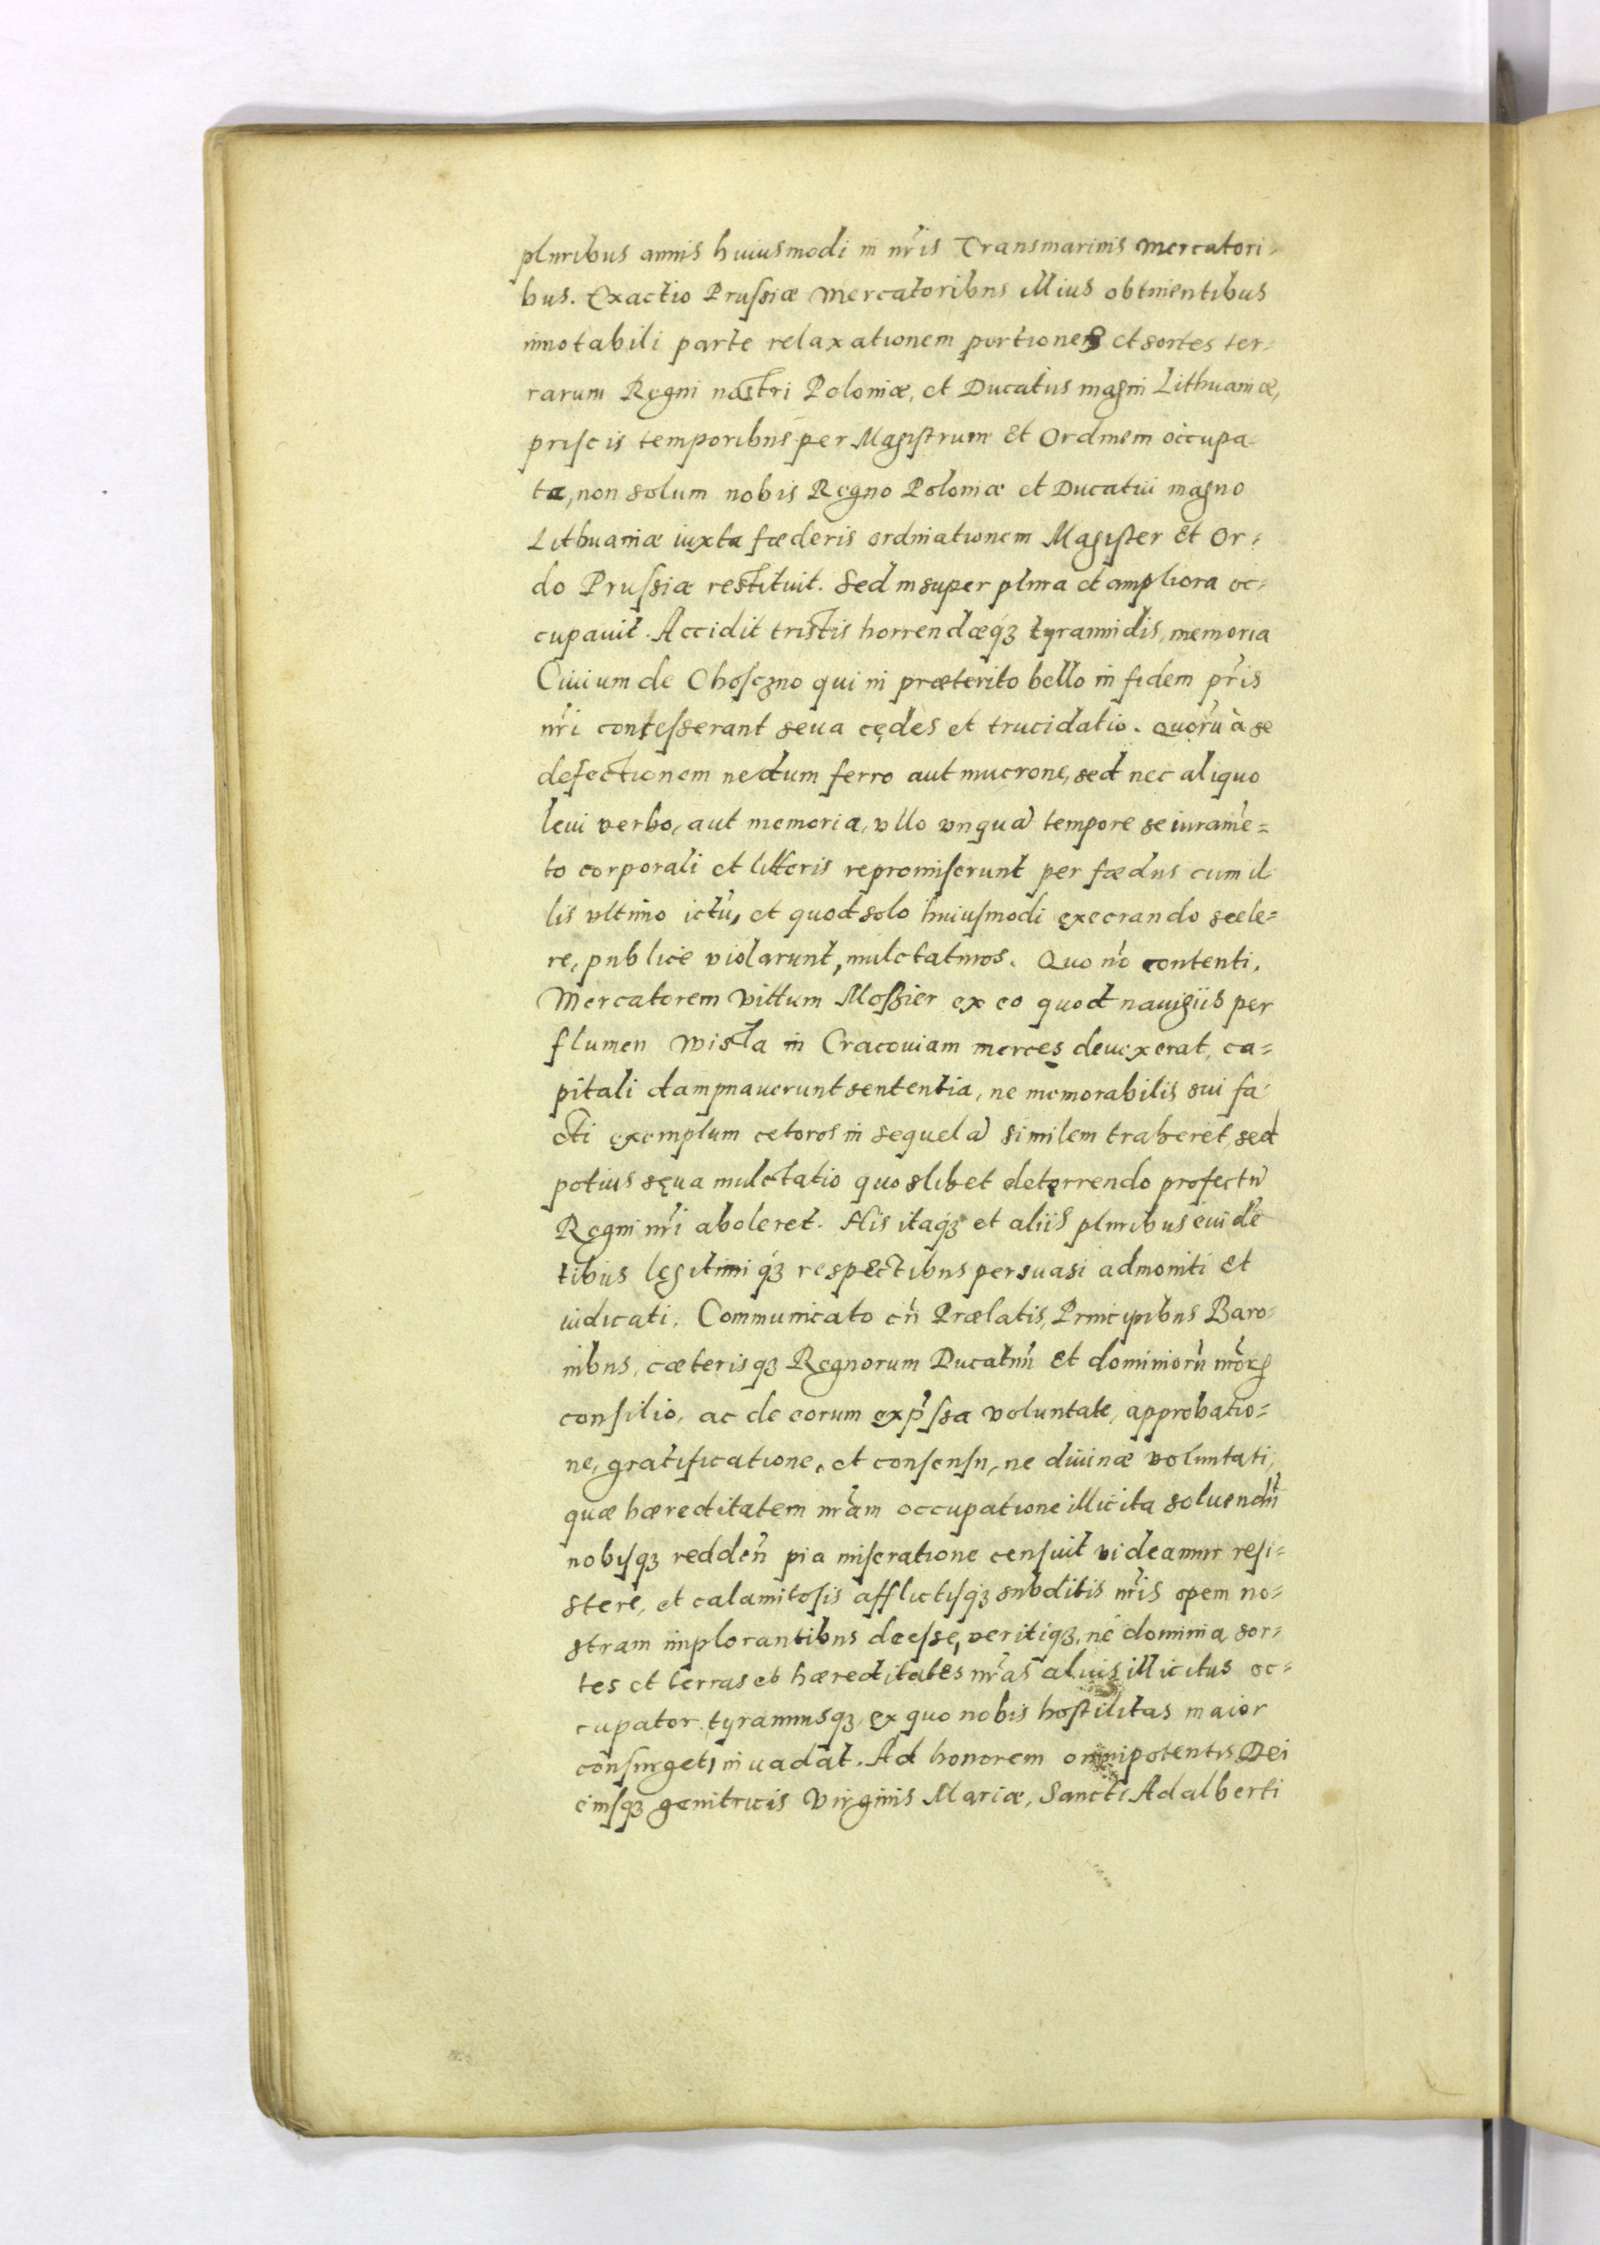 pluribus annis huiusmodi in nr̃is Transmarinis Mercatori-
bus. Exactio Prussiæ Mercatoribus illius obtinentibus
innotabili parte relaxationem portiones et sortes ter-
rarum Regni nostri Poloniæ, et Ducatus magni Lithuaniæ,
priscis temporibus per Magistrum Et Ordinem occupa-
ta, non solum nobis Regno Poloniæ et Ducatui magno
Lithuaniæ iuxta fœderis ordinationem Magister Et Or-
do Prussiæ restituit. Sed insuper plura et ampliora oc-
cupauit. Accidit tristis horrendæq́ʒ tyrannidis, memoria
Ciuium de Choseʒno qui in præterito bello in fidem pr̃is
nr̃i contesserant seua cędes et trucidatio. Quorũ à se
defectionem nedum ferro aut mucrone, sed nec aliquo
leui verbo, aut memoria, vllo vnquã tempore se iuramẽ=
to corporali et litteris repromiserunt per fœdus cum il-
lis vltimo ictũ, et quod solo huiusmodi execrando scele=
re, publicè violarunt, mulctaturos. Quo nõ contenti,
Mercatorem Vittum Moßier ex eo quod nauigiis per
flumen Wisla in Cracouiam merces deuexerat, ca=
pitali dampnauerunt sententia, ne memorabilis sui fa-
cti exemplum ceteros in sequelã similem traheret, sed
potius sęua mulctatio quoslibet deterrendo profectũ
Regni nr̃i aboleret. His itaq́ʒ et aliis pluribus euidẽ
tibus legitimiq́ʒ respectibus persuasi admoniti Et
iudicati, Communicato cũ Prælatis, Principibus Baro-
nibus, cæterisqʒ Regnorum Ducatuũ Et dominiorũ nr̃orꝝ
consilio, ac de eorum exp̃ssa voluntate, approbatio=
ne, gratificatione, et consensu, ne diuinæ voluntati,
quæ hæreditatem nr̃am occupatione illicita soluendã
nobisqʒ reddeñ pia miseratione censuit videamur resi-
stere, et calamitosis afflictisqʒ subditis nr̃is opem no-
stram implorantibus deesse, veritiqʒ, ne dominia, sor-
tes et terras et hæreditates nr̃as alius illicitus oc-
cupator tyrannusqʒ, ex quo nobis hostilitas maior
consurget, inuadat. Ad honorem omnipotentis Dei
eiusqʒ genitricis Virginis Mariæ, Sancti Adalberti